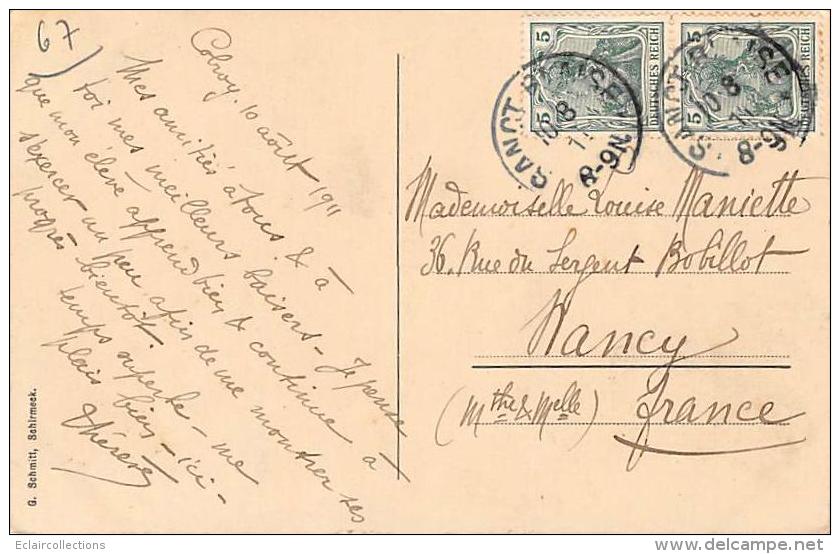 67
Colroy. 10 août 1911
Mes amitiés à tous & à
toi mes meilleurs baisers - Je pense
que mon élève apprend bien & continue à
s'exercer un peu afin de me montrer ses
progrès bientôt.
temps superbe - me
plais bien - ici -
Thérèse
G. Schmitt, Schirmeck.
5 DEUTSCHES REICH
5 DEUTSCHES REICH
SANCT BLAISE
10 8
8-9N
SANCT BLAISE
10 8
8-9N
Mademoiselle Louise Maniette
36, Rue du Sergent Bobillot
Nancy
(Mthe & Melle) france
Eclaircollections
http://www.delcampe.net